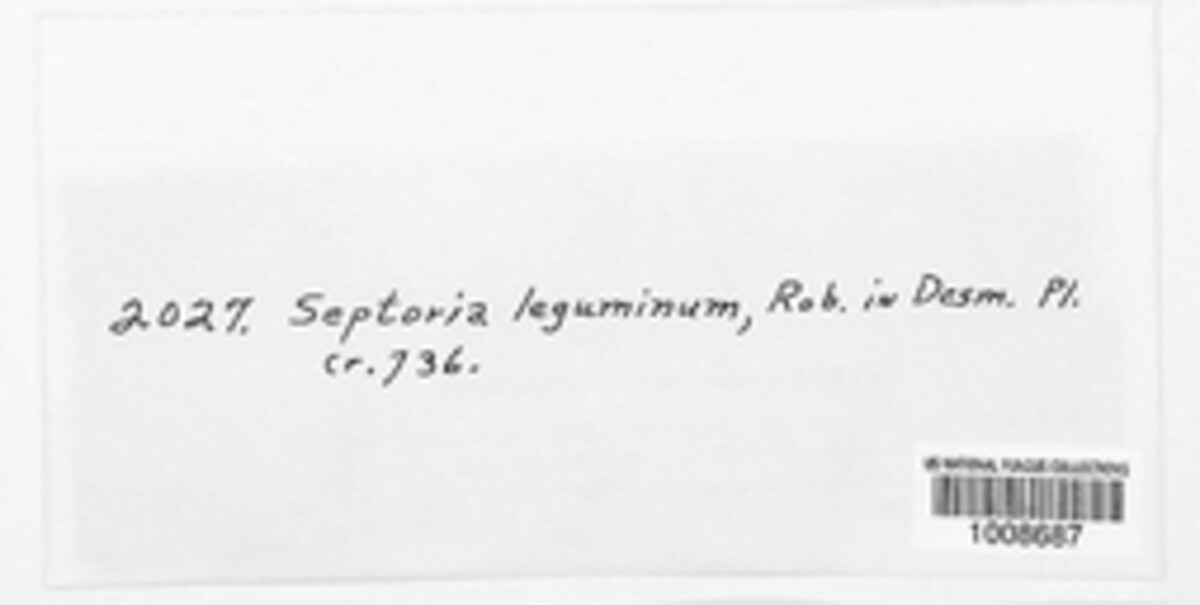 2027. Septoria leguminum, Rob. in Desm. Pl.
cr. 736.
US NATIONAL FUNGUS COLLECTIONS
1008687